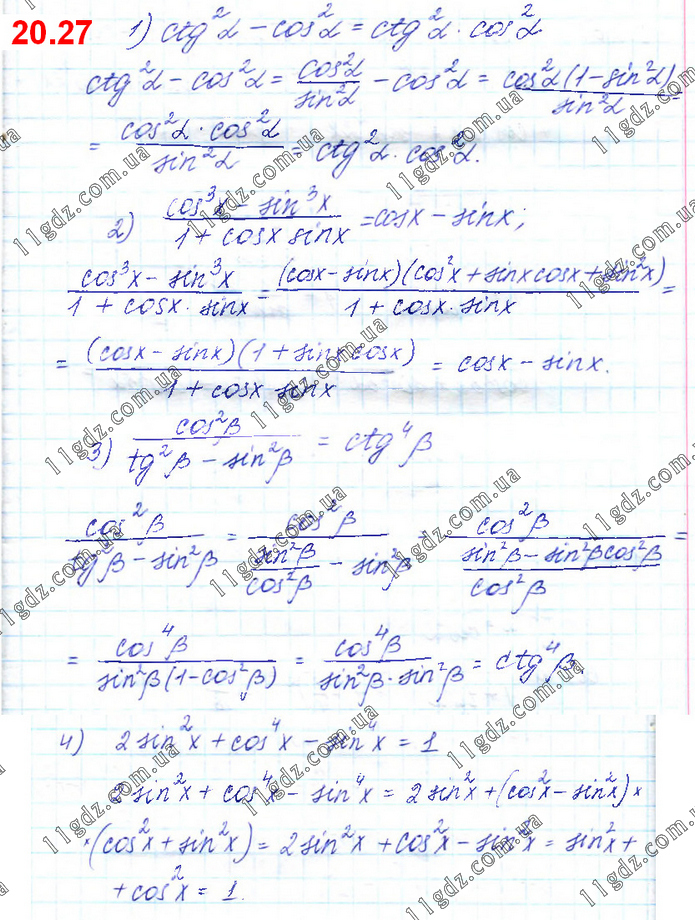 20.27
1) ctg²α − cos²α = ctg²α · cos²α
ctg²α − cos²α = cos²α/sin²α − cos²α = cos²α(1−sin²α)/sin²α =
= cos²α · cos²α/sin²α = ctg²α · cos²α.
2) (cos³x − sin³x)/(1 + cosx sinx) = cosx − sinx;
(cos³x − sin³x)/(1 + cosx · sinx) = (cosx − sinx)(cos²x + sinx cosx + sin²x)/(1 + cosx · sinx) =
= (cosx − sinx)(1 + sinx cosx)/(1 + cosx sinx) = cosx − sinx.
3) cos²β/(tg²β − sin²β) = ctg⁴β
cos²β/(tg²β − sin²β) = cos²β/(sin²β/cos²β − sin²β) = cos²β/((sin²β − sin²β cos²β)/cos²β) =
= cos⁴β/(sin²β(1−cos²β)) = cos⁴β/(sin²β · sin²β) = ctg⁴β.
4) 2sin²x + cos⁴x − sin⁴x = 1
2sin²x + cos⁴x − sin⁴x = 2sin²x + (cos²x − sin²x) ×
× (cos²x + sin²x) = 2sin²x + cos²x − sin²x = sin²x +
+ cos²x = 1.
11gdz.com.ua